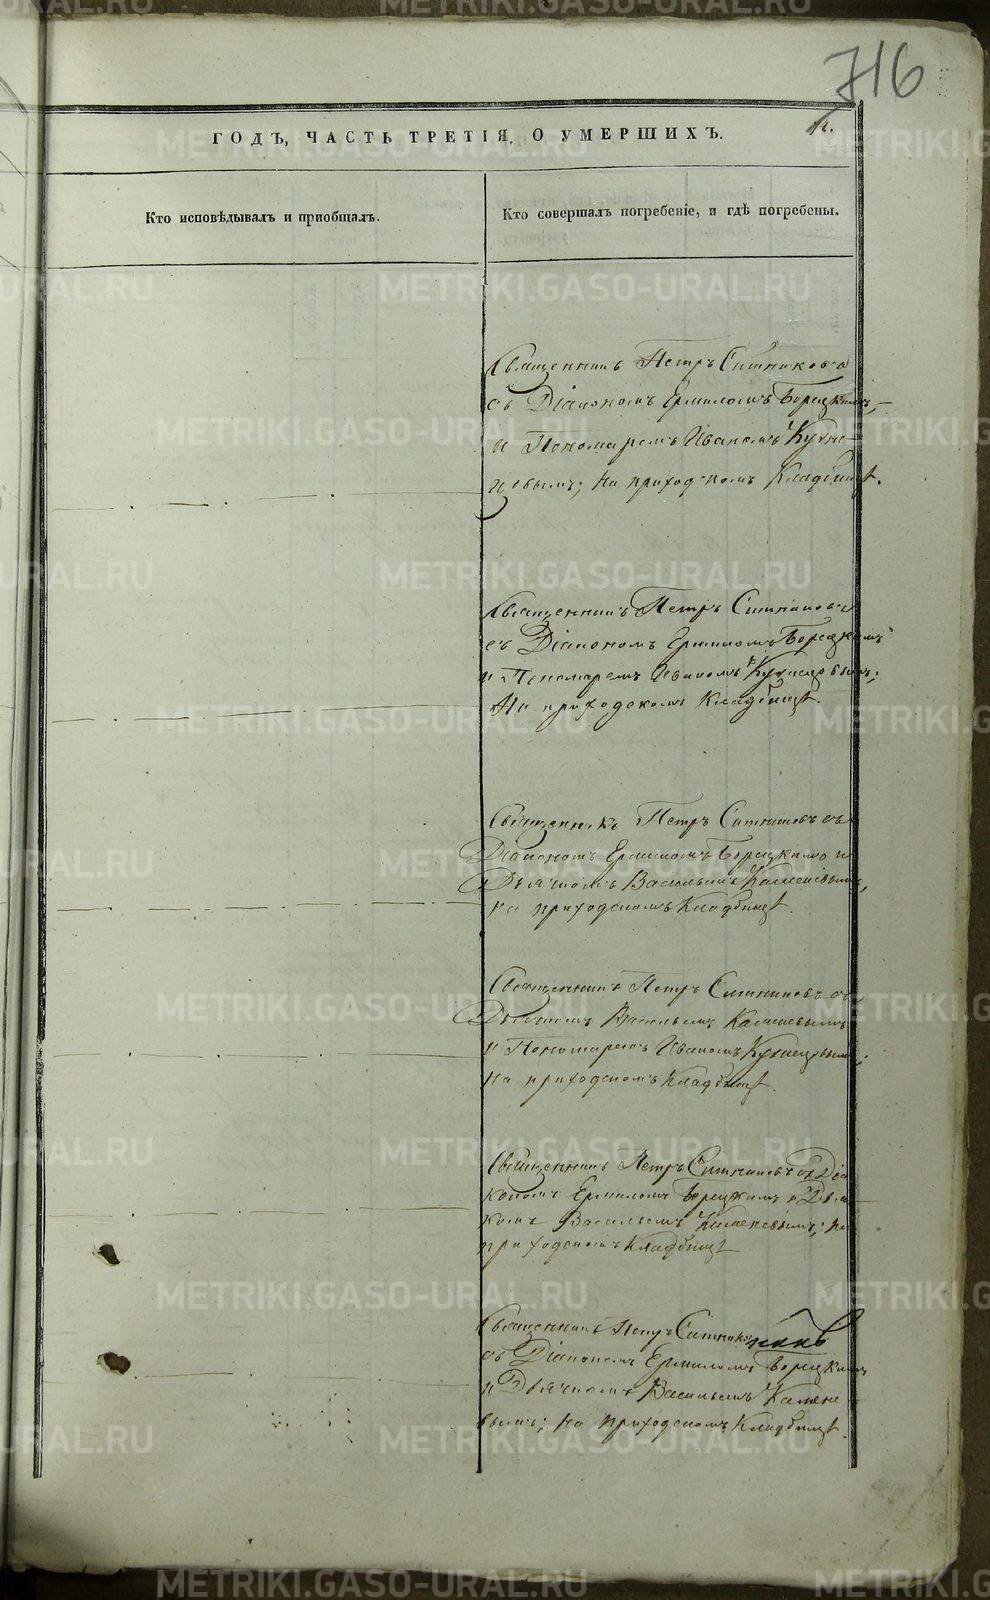 716
ГОДЪ, ЧАСТЬ ТРЕТІЯ, О УМЕРШИХЪ.
Кто исповѣдывалъ и пріобщалъ.
Кто совершалъ погребеніе, и гдѣ погребены.
Священникъ Петръ Ситниковъ
съ Діакономъ Ермиломъ Борецкимъ,
и Пономаремъ Иваномъ Кузне-
цовымъ; На приходскомъ Кладбищѣ.
Священникъ Петръ Ситниковъ
съ Діакономъ Ермиломъ Борецкимъ
и Пономаремъ Иваномъ Кузнецовымъ;
На приходскомъ Кладбищѣ.
Священникъ Петръ Ситниковъ съ
Діакономъ Ермиломъ Борецкимъ и
Дьячкомъ Васильемъ
на приходскомъ Кладбищѣ.
Священникъ Петръ Ситниковъ съ
Дьячкомъ Васильемъ
и Пономаремъ Иваномъ Кузнецовымъ;
На приходскомъ Кладбищѣ.
Священникъ Петръ Ситниковъ съ Діа
кономъ Ермиломъ Борецкимъ и Дьяч
комъ Васильемъ на
приходскомъ Кладбищѣ
Священникъ Петръ
съ Діакономъ Ермиломъ Борецкимъ
и Дьячкомъ Васильемъ
На приходскомъ Кладбищѣ.
METRIKI.GASO-URAL.RU